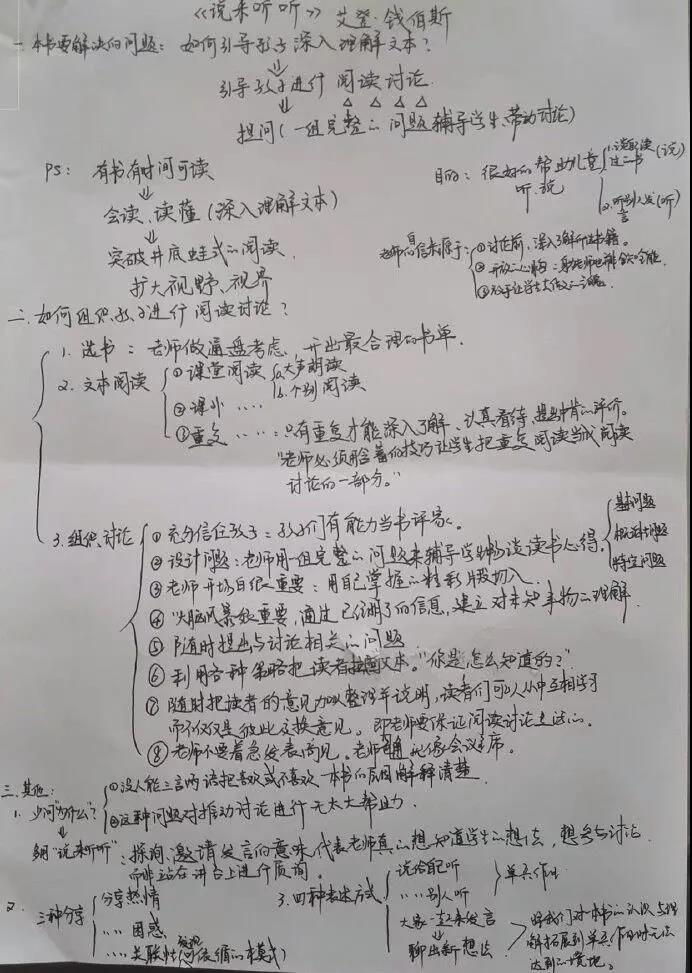 《说来听听》 艾登·钱伯斯
一.本书要解决的问题：如何引导孩子深入理解文本？
引导孩子进行 阅读讨论
提问（一组完整的问题辅导学生、带动讨论）
PS： 有书有时间可读
目的：很好的帮助儿童 听、说
1.说(说)
2.听别人发言 (听)
会读、读懂（深入理解文本）
突破井底蛙式的阅读
扩大视野、视界
老师自信来源于：
①讨论前，深入了解所选书籍。
②开放的心胸：
③
二.如何组织孩子进行阅读讨论？
1.选书：老师做通盘考虑、开出最合理的书单.
2.文本阅读
①课堂阅读 a.大声朗读
b.个别阅读
②课外 ....
③重复 ....：只有重复才能深入了解、认真看待、提出中肯的评价。
"老师必须用合适的技巧让学生把重复阅读当成阅读
讨论的一部分。"
3.组织讨论
①充分信任孩子：孩子们有能力当书评家。
②设计问题：老师用一组完整的问题来辅导学生畅谈读书心得.
基本问题
概括问题
特定问题
③老师开场白很重要：用自己掌握的精彩片段切入.
④"头脑风暴"很重要，通过已经了解的信息，建立对未知事物的理解.
⑤随时提出与讨论相关的问题
⑥利用各种策略把读者拉回文本。"你是怎么知道的？"
⑦随时把读者的意见加以整理并说明，读者们可以从中互相学习
而不仅仅是彼此交换意见。即老师要保证阅读讨论
⑧老师不要着急发表高见。老师 会议主席。
三.其他：
1.少问"为什么"？
①没人能三言两语把喜欢或不喜欢一本书的原因解释清楚.
②这种问题对推动讨论进行无太大帮助.
多用"说来听听"：探询、邀请发言的意味，代表老师真的想知道学生的想法，想参与讨论.
而非站在讲台上进行质询.
2.三种分享
分享热情
.... 困惑
.... 关联性(发现可依循的本模式)
3.四种表述方式
说给自己听
.... 别人听
大家一起来发言
聊出新想法
将我们对本书的认识与理
解拓展到单兵作战时无法
达到的境地。